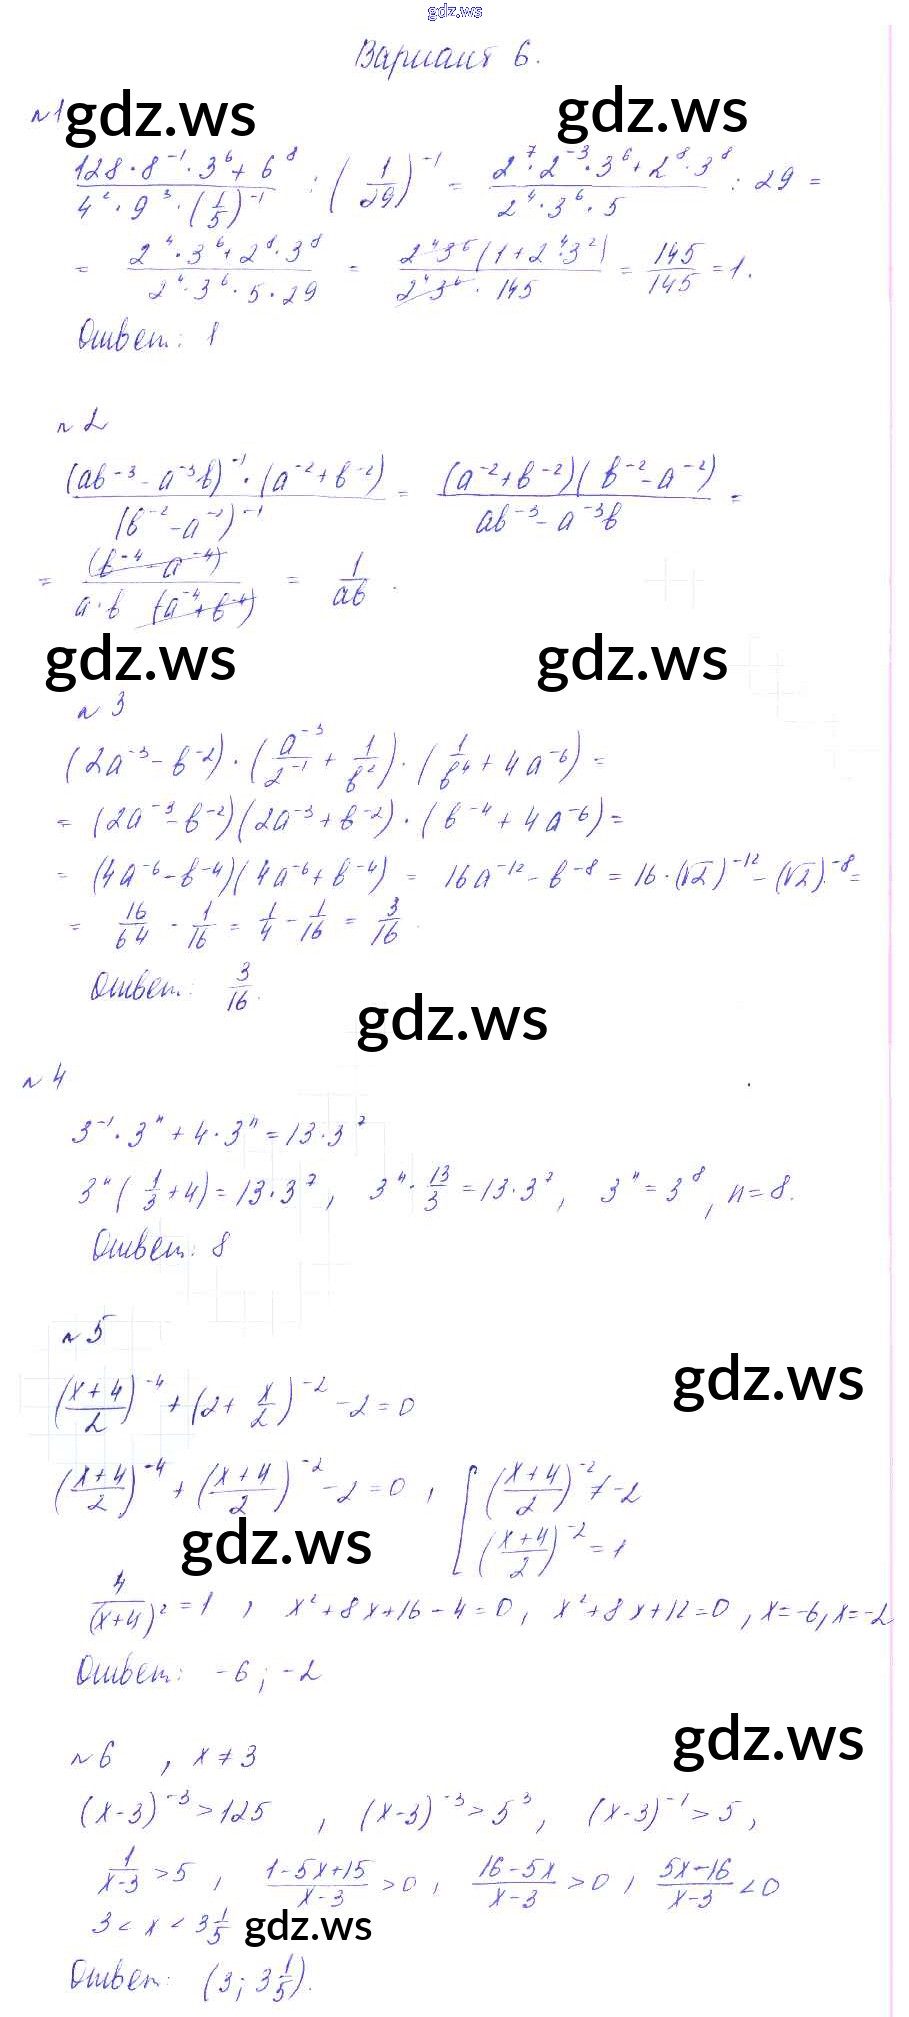 gdz.ws
Вариант 6.
№1 gdz.ws gdz.ws
(128·8⁻¹·3⁶+6⁸)/(4²·9³·(1/5)⁻¹) : (1/29)⁻¹ = (2⁷·2⁻³·3⁶+2⁸·3⁸)/(2⁴·3⁶·5) : 29 =
= (2⁴·3⁶+2⁸·3⁸)/(2⁴·3⁶·5·29) = (2⁴3⁶(1+2⁴·3²))/(2⁴3⁶·145) = 145/145 = 1.
Ответ: 1
№2
((ab⁻³-a⁻³b)⁻¹·(a⁻²+b⁻²))/((b⁻²-a⁻²)⁻¹) = ((a⁻²+b⁻²)(b⁻²-a⁻²))/(ab⁻³-a⁻³b) =
= (b⁻⁴-a⁻⁴)/(a·b(-a⁻⁴+b⁻⁴)) = 1/ab.
gdz.ws gdz.ws
№3
(2a⁻³-b⁻²)·(a⁻³/2⁻¹+1/b²)·(1/b⁴+4a⁻⁶)=
=(2a⁻³-b⁻²)(2a⁻³+b⁻²)·(b⁻⁴+4a⁻⁶)=
=(4a⁻⁶-b⁻⁴)(4a⁻⁶+b⁻⁴) = 16a⁻¹²-b⁻⁸=16·(√2)⁻¹²-(√2)⁻⁸=
= 16/64 - 1/16 = 1/4 - 1/16 = 3/16.
Ответ: 3/16.
gdz.ws
№4
3⁻¹·3ⁿ+4·3ⁿ=13·3⁷
3ⁿ(1/3+4)=13·3⁷, 3ⁿ·13/3=13·3⁷, 3ⁿ=3⁸, n=8.
Ответ: 8
№5
gdz.ws
((x+4)/2)⁻⁴+(2+x/2)⁻²-2=0
((x+4)/2)⁻⁴+((x+4)/2)⁻²-2=0, [((x+4)/2)⁻²≠-2
((x+4)/2)⁻²=1
gdz.ws
4/(x+4)²=1, x²+8x+16-4=0, x²+8x+12=0, x=-6, x=-2
Ответ: -6; -2
gdz.ws
№6, x≠3
(x-3)⁻³>125, (x-3)⁻³>5³, (x-3)⁻¹>5,
1/(x-3)>5, (1-5x+15)/(x-3)>0, (16-5x)/(x-3)>0, (5x-16)/(x-3)<0
3<x<3 1/5 gdz.ws
Ответ: (3; 3 1/5).